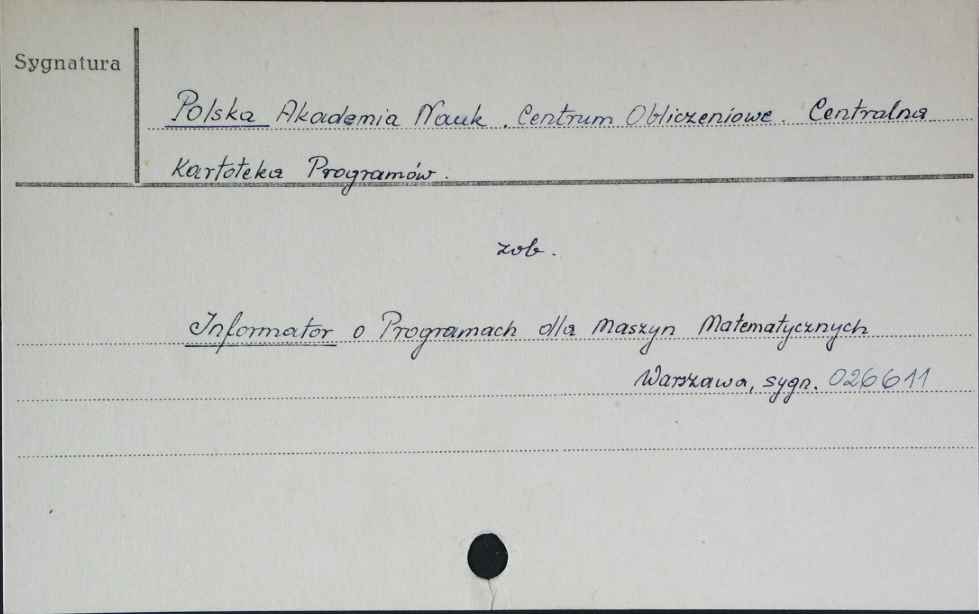 Sygnatura
Polska Akademia Nauk. Centrum Obliczeniowe. Centralna
Kartoteka Programów.
zob.
Informator o Programach dla Maszyn Matematycznych
Warszawa, sygn. 026611